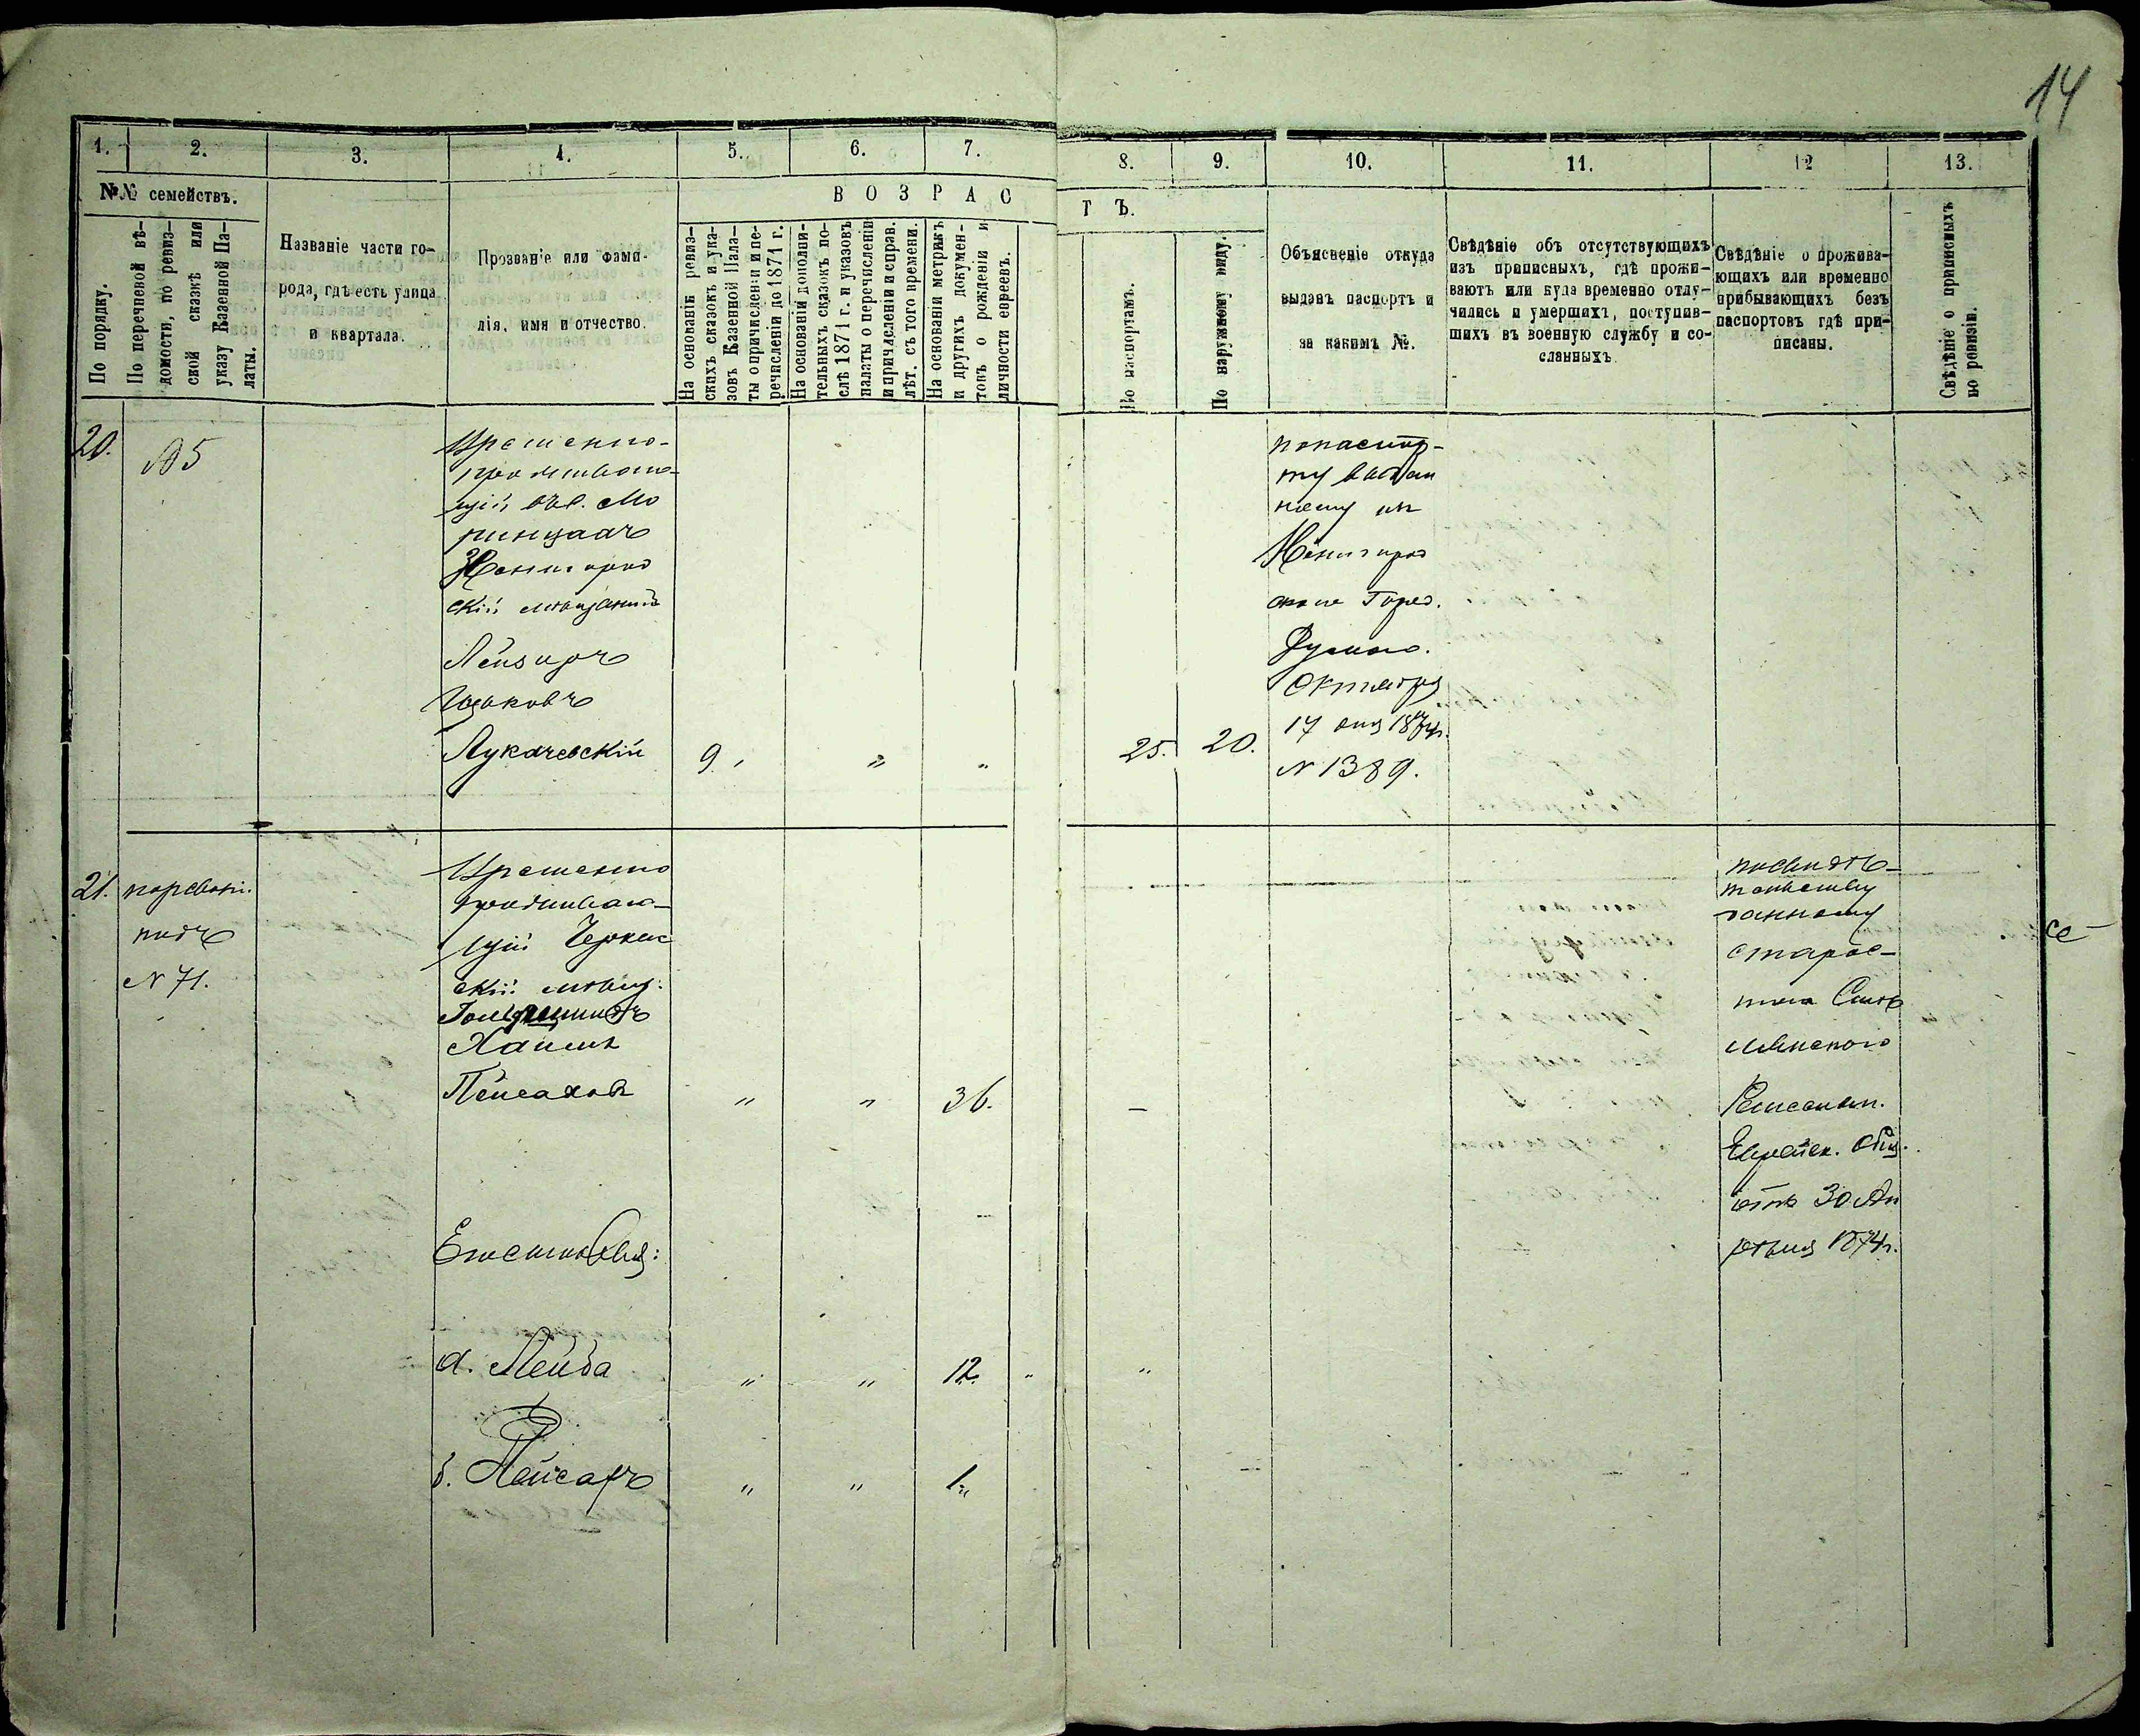 14
1. 2. 3. 4. 5. 6. 7. 8. 9. 10. 11. 12 13.
№№ семействъ.
По порядку.
По перечневой вѣ-
домости, по ревиз-
ской сказкѣ или
указу Казенной Па-
латы.
Названіе части го-
рода, гдѣ есть улица
и квартала.
Прозваніе или фами-
лія, имя и отчество.
ВОЗРАС
ТЪ.
На основаніи ревиз-
скихъ сказокъ и ука-
зовъ Казенной Пала-
ты о причисленіи и пе-
речисленіи до 1871 г.
На основаніи дополни-
тельныхъ сказокъ по-
слѣ 1871 г. и указовъ
палаты о перечисленіи
и причисленіи и справ.
лѣт. съ того времени.
На основаніи метрикъ
и другихъ докумен-
товъ о рожденіи и
личности евреевъ.
По паспортамъ.
По наружному виду.
Объясненіе откуда
выданъ паспортъ и
за какимъ №.
Свѣдѣніе объ отсутствующихъ
изъ приписныхъ, гдѣ прожи-
ваютъ или куда временно отлу-
чились и умершихъ, поступив-
шихъ въ военную службу и со-
сланныхъ
Свѣдѣніе о прожива-
ющихъ или временно
прибывающихъ безъ
паспортовъ гдѣ при-
писаны.
Свѣдѣніе о приписныхъ
по ревизіи.
20.
Временно-
проживаю-
щій въ с. Мо
ринцахъ
Звенигород
скій мѣщанинъ
Лейзоръ
Ицковъ
Лукачевскій 9 " " 25. 20.
попаспор-
ту выдан
ному из
Звенигород
ской Город.
Думою.
Октября
17 дня 1874г.
N 1389.
21.
подъ
N 71.
Временно
проживаю-
щій Черкас
скій мѣщ:
Хаимъ
Пейсаховъ " " 36. -
Его сыновья:
а. Лейба " " 12. "
б. Пейсахъ " " 1.
посвидѣ-
тельству
данному
старос-
тою
Еврейск. Общ.
отъ 30 Ап
рѣля 1874г.